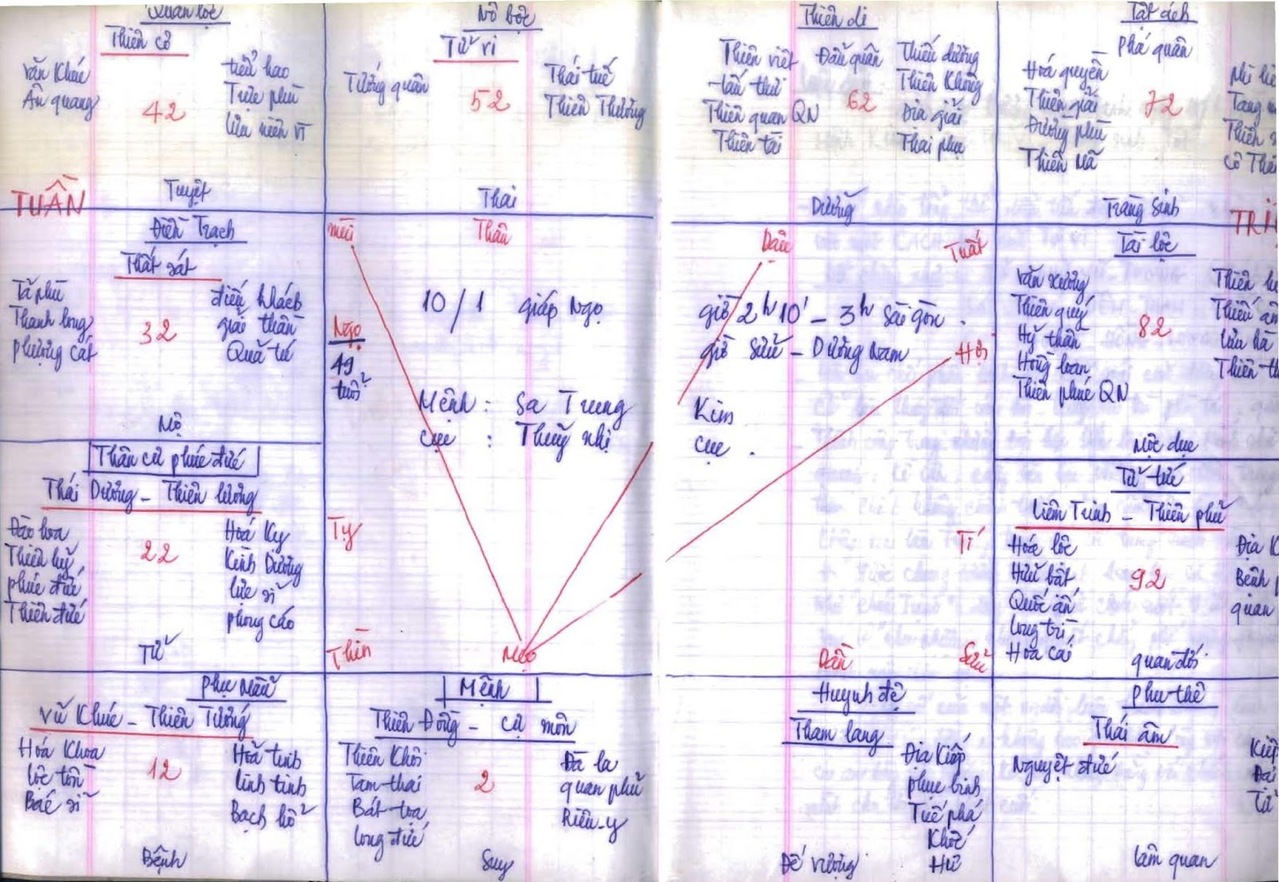 Quan lộc
Thiên cơ
Văn Khúc
Ân quang
42
tiểu hao
Trực phù
lưu niên VT
Tuyệt
TUẦN
Nô bộc
Tử vi
Tướng quân
52
Thái tuế
Thiên Thương
Thai
Thiên di
Thiên việt
tấu thư
Thiên quan QN
Thiên tài
Đẩu quân
62
Thiếu dương
Thiên Không
Địa giải
Thai phụ
Dưỡng
Tật ách
Phá quân
Hoá quyền
Thiên giải
Đường phù
Thiên Mã
72
Tràng Sinh
Điền Trạch
Thất sát
Tả phù
Thanh long
phượng các
32
điếu khách
giải thần
Quả tú
Mộ
mùi
Thân
Dậu
Tuất
10/1 giáp Ngọ
giờ 2h10' - 3h Sài gòn.
giờ Sửu - Dương Nam
Ngọ
49
tuổi
Hợi
Mệnh : Sa Trung Kim
cục : Thuỷ nhị cục.
Tỵ
Tí
Thìn
Mẹo
Dần
Sửu
Tài lộc
Văn xương
Thiên quý
Hỷ thần
Hồng loan
Thiên phúc QN
82
Mộc dục
Thân cư phúc đức
Thái Dương - Thiên lương
Đào hoa
Thiên hỷ
phúc đức
Thiên đức
22
Hoá Kỵ
Kình Dương
lực sĩ
phong cáo
Tử
Tử tức
Liêm Trinh - Thiên phủ
Hoá lộc
Hữu bật
Quốc ấn
long trì
Hoa cái
92
quan đới
Phụ Mẫu
Vũ Khúc - Thiên Tướng
Hoá Khoa
lộc tồn
Bác sĩ
12
Hoả tinh
linh tinh
Bạch hổ
Bệnh
Mệnh
Thiên Đồng - cự môn
Thiên Khôi
Tam thai
Bát tọa
long đức
2
Đà la
quan phủ
Riêu-y
Suy
Huynh đệ
Tham lang
Địa Kiếp
phục binh
Tuế phá
Khốc
Hư
Đế vượng
Phu thê
Thái âm
Nguyệt đức
lâm quan